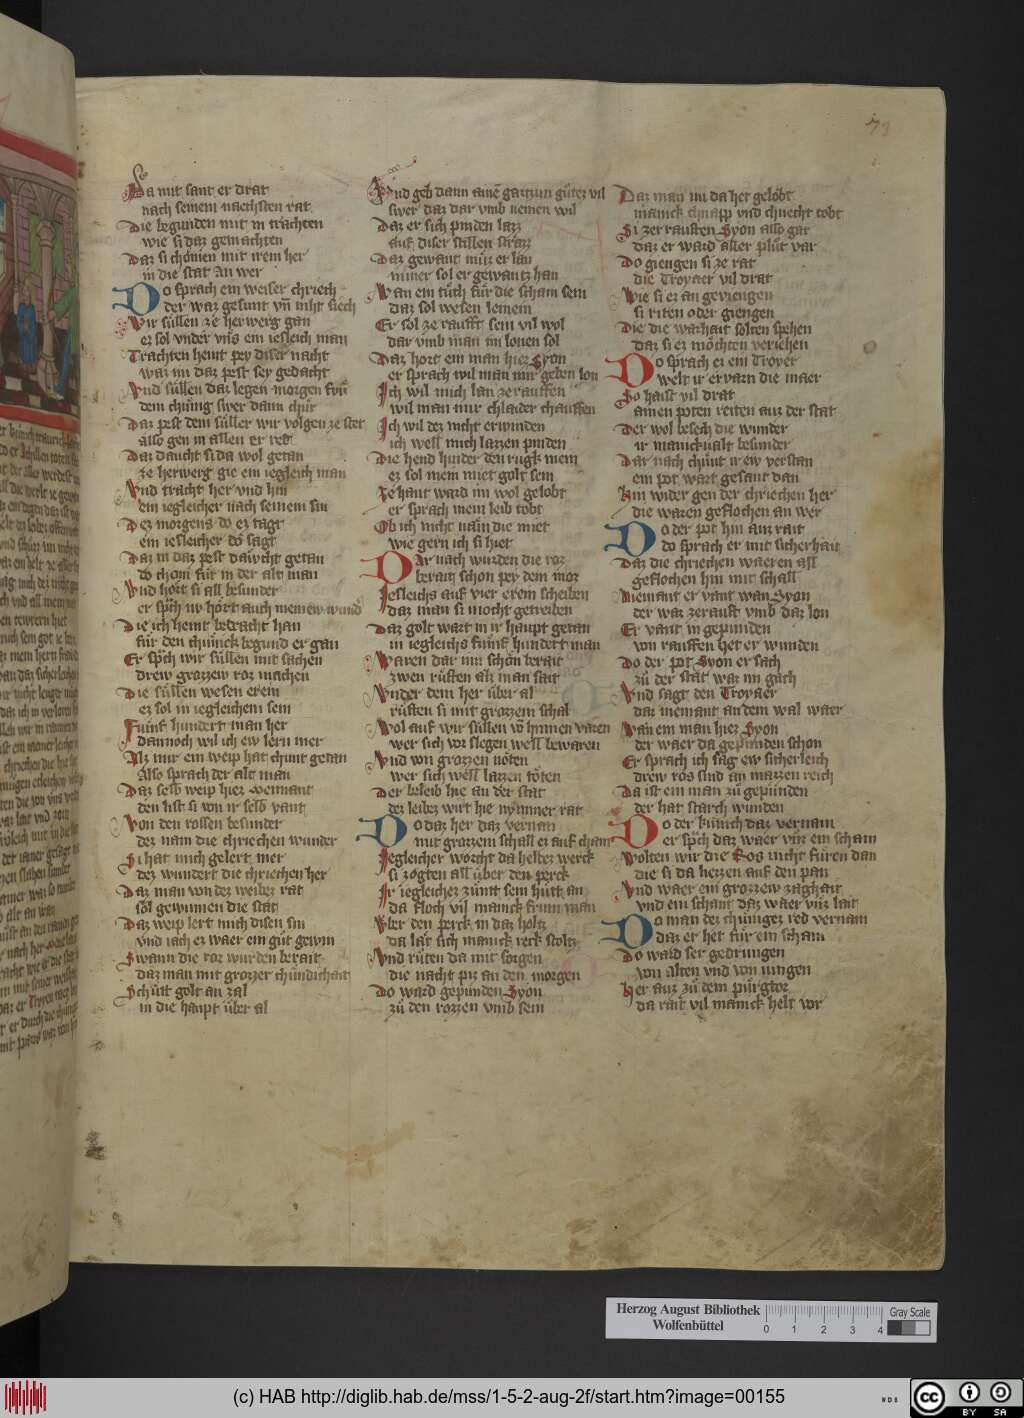 73
Da mit sant er drat
nach seinem naechsten rat
Die begunden mit im trachten
wie si daz gemachten
Daz si chömen mit irem her
in die stat an wer
Do sprach ein weiser chriech
der waz gesunt vn̄ niht siech
Wir süllen ze herwerg gan
ez sol vnder vns ein iesleich man
Trachten heint pey diser nacht
waz im daz pest sey gedacht
Vnd süllen daz legen morgen für
dem chünig swer dann chür
Daz pest dem süller wir volgen ze stet
also gen in allen er ret
Daz daucht si da wol getan
ze herwerg gie ein iegleich man
Vnd tracht her vnd hin
ein iegleicher nach seinem sin
Dez morgens do ez tagt
ein iesleicher do sagt
Daz in daz pest dawcht getan
do chom für in der alt man
Vnd hort si all besunder
er sp̄ch nv hört auch meinew wund
Die ich heint bedacht han
für den chünick begund er gan
Er sp̄ch wir süllen mit sachen
drew grozzew roz machen
Die süllen wesen erein
ez sol in iegleichem sein
Fünf hundert man her
dannoch wil ich ew lern mer
Alz mir ein weip hat chunt getan
Also sprach der alt man
Daz selb weip hiez Meinaut
den list si von ir selb vant
Von den rossen besunder
dez nam die chriechen wunder
Si hat mich gelert mer
dez wundert die chriechen her
Daz man von dez weibez rat
söl gewinnen die stat
Daz weip lert mich disen sin
vnd iach ez waer ein gut gewin
Swann die roz wurden berait
daz man mit grozzer chündichait
Schütt golt an zal
in die haupt über al
Vnd geb dann aine garzun gutez vil
swer daz dar vmb nemen wil
Daz er sich pinden lazz
auf diser stillen strazz
Daz gewant müz er lan
nimer sol er gewantz han
Wan ein tuch für die scham sein
daz sol wesen leinein
Er sol ze raufft sein vil wol
dar vmb man im lonen sol
Daz hort ein man hiez Syon
er sprach wil man mir geben lon
Ich wil mich lan zerauffen
wil man mir chlaider chauffen
Ich wil dez nicht erwinden
ich well mich lazzen pinden
Die hend hinder den rugk mein
ez sol mein miet golt sein
Ze hant ward im wol gelobt
er sprach mein leib tobt
Ob ich nicht naem die miet
wie gern ich si hiet
Dar nach wurden die roz
berait schon pey dem moz
Iesleichs auf vier erein scheiben
daz man si mocht getreiben
Daz golt wart in ir haupt getan
in iegleichs fünf hundert man
Waren dar inn schon berait
zwen rüsten alz man sait
Vnder dem her über al
rüsten si mit grozzem schal
Wol auf wir süllen vō hinnen varen
wer sich vor slegen well bewaren
Vnd von grozzen nöten
wer sich well lazzen töten
Der beleib hie an der stat
dez leibez wirt hie nymmer rat
Do daz her daz vernam
mit grozzem schall ez auf cham
Iegleicher worcht da heldez werck
si zogten all über den perck
Ir iegleicher zünt sein hütt an
da floch vil manick frum man
Vber den perck in daz holtz
da lat sich manick reck stoltz
Vnd rüten da mit sorgen
die nacht piz an den morgen
Do ward gepunden Syon
zu den rozzen vmb sein
Daz man im da het gelobt
manick chnapp vnd chnecht tobt
Si zerrausten Syon also gar
daz er ward aller plut var
Do giengen si ze rat
die Troyaer vil drat
Wie si ez an geviengen
si riten oder giengen
Die die warhait solten spehen
daz si ez möchten veriehen
Do sprach ez ein Troyer
welt ir ervarn die maer
So haist vil drat
ainen poten reiten auz der stat
Der wol besech die wunder
ir manichualt besunder
Dar nach chünt irew verstan
ein pot wart gesant dan
Hin wider gen der chriechen her
die waren geflochen an wer
Do der pot hin auz rait
do sprach er mit sicherhait
Daz die chriechen waeren all
geflochen hin mit schall
Niemant er vant wan Syon
der waz zeraust vmb daz lon
Er vant in gepunden
von rauffen het er wunden
Do der pot Syon er sach
zu der stat waz im gach
Vnd sagt den Troyaer
daz niemant an dem wal waer
Wan ein man hiez Syon
der waer da gepunden schon
Er sprach ich sag ew sicherleich
drew ros sind an mazzen reich
Da ist ein man zu gepunden
der hat starch wunden
Do der künich daz vernam
er sp̄ch daz waer vnz ein scham
Wolten wir die Ros nicht füren dan
die si da hetzen auf den pan
Vnd waer ein grozzew zaghait
vnd ein schant daz waer vnz lait
Do man dez chüniges red vernam
daz er het für ein scham
Do wald ser gedrungen
von alten vnd von iungen
Her auz zu dem purgtor
da rait vil manick helt vor
Herzog August Bibliothek
Wolfenbüttel
0 1 2 3 4
Gray Scale
(c) HAB http://diglib.hab.de/mss/1-5-2-aug-2f/start.htm?image=00155
WDB
cc
BY SA